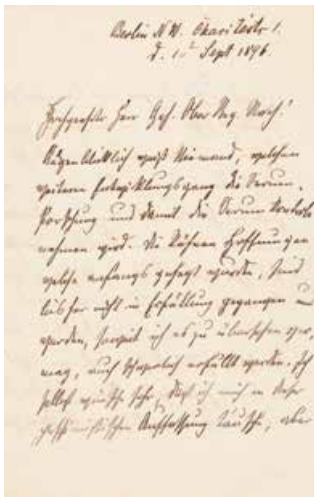 Berlin N.W. Charitéstr. 1.
d. 1t Sept 1896.
Hochgeehrter Herr Geh. Ober Reg. Rath!
Augenblicklich weiß Niemand, welchen
weiteren Entwicklungsgang die Serum-
forschung und damit die Serum Kontrole
nehmen wird. Die kühnen Hoffnungen
welche anfangs gehegt wurden, sind
bisher nicht in Erfüllung gegangen u
werden, soweit ich es zu übersehen ver-
mag, auch schwerlich erfüllt werden. Ich
selbst wünsche sehr, daß ich mich in dieser
pessimistischen Auffassung täusche, aber